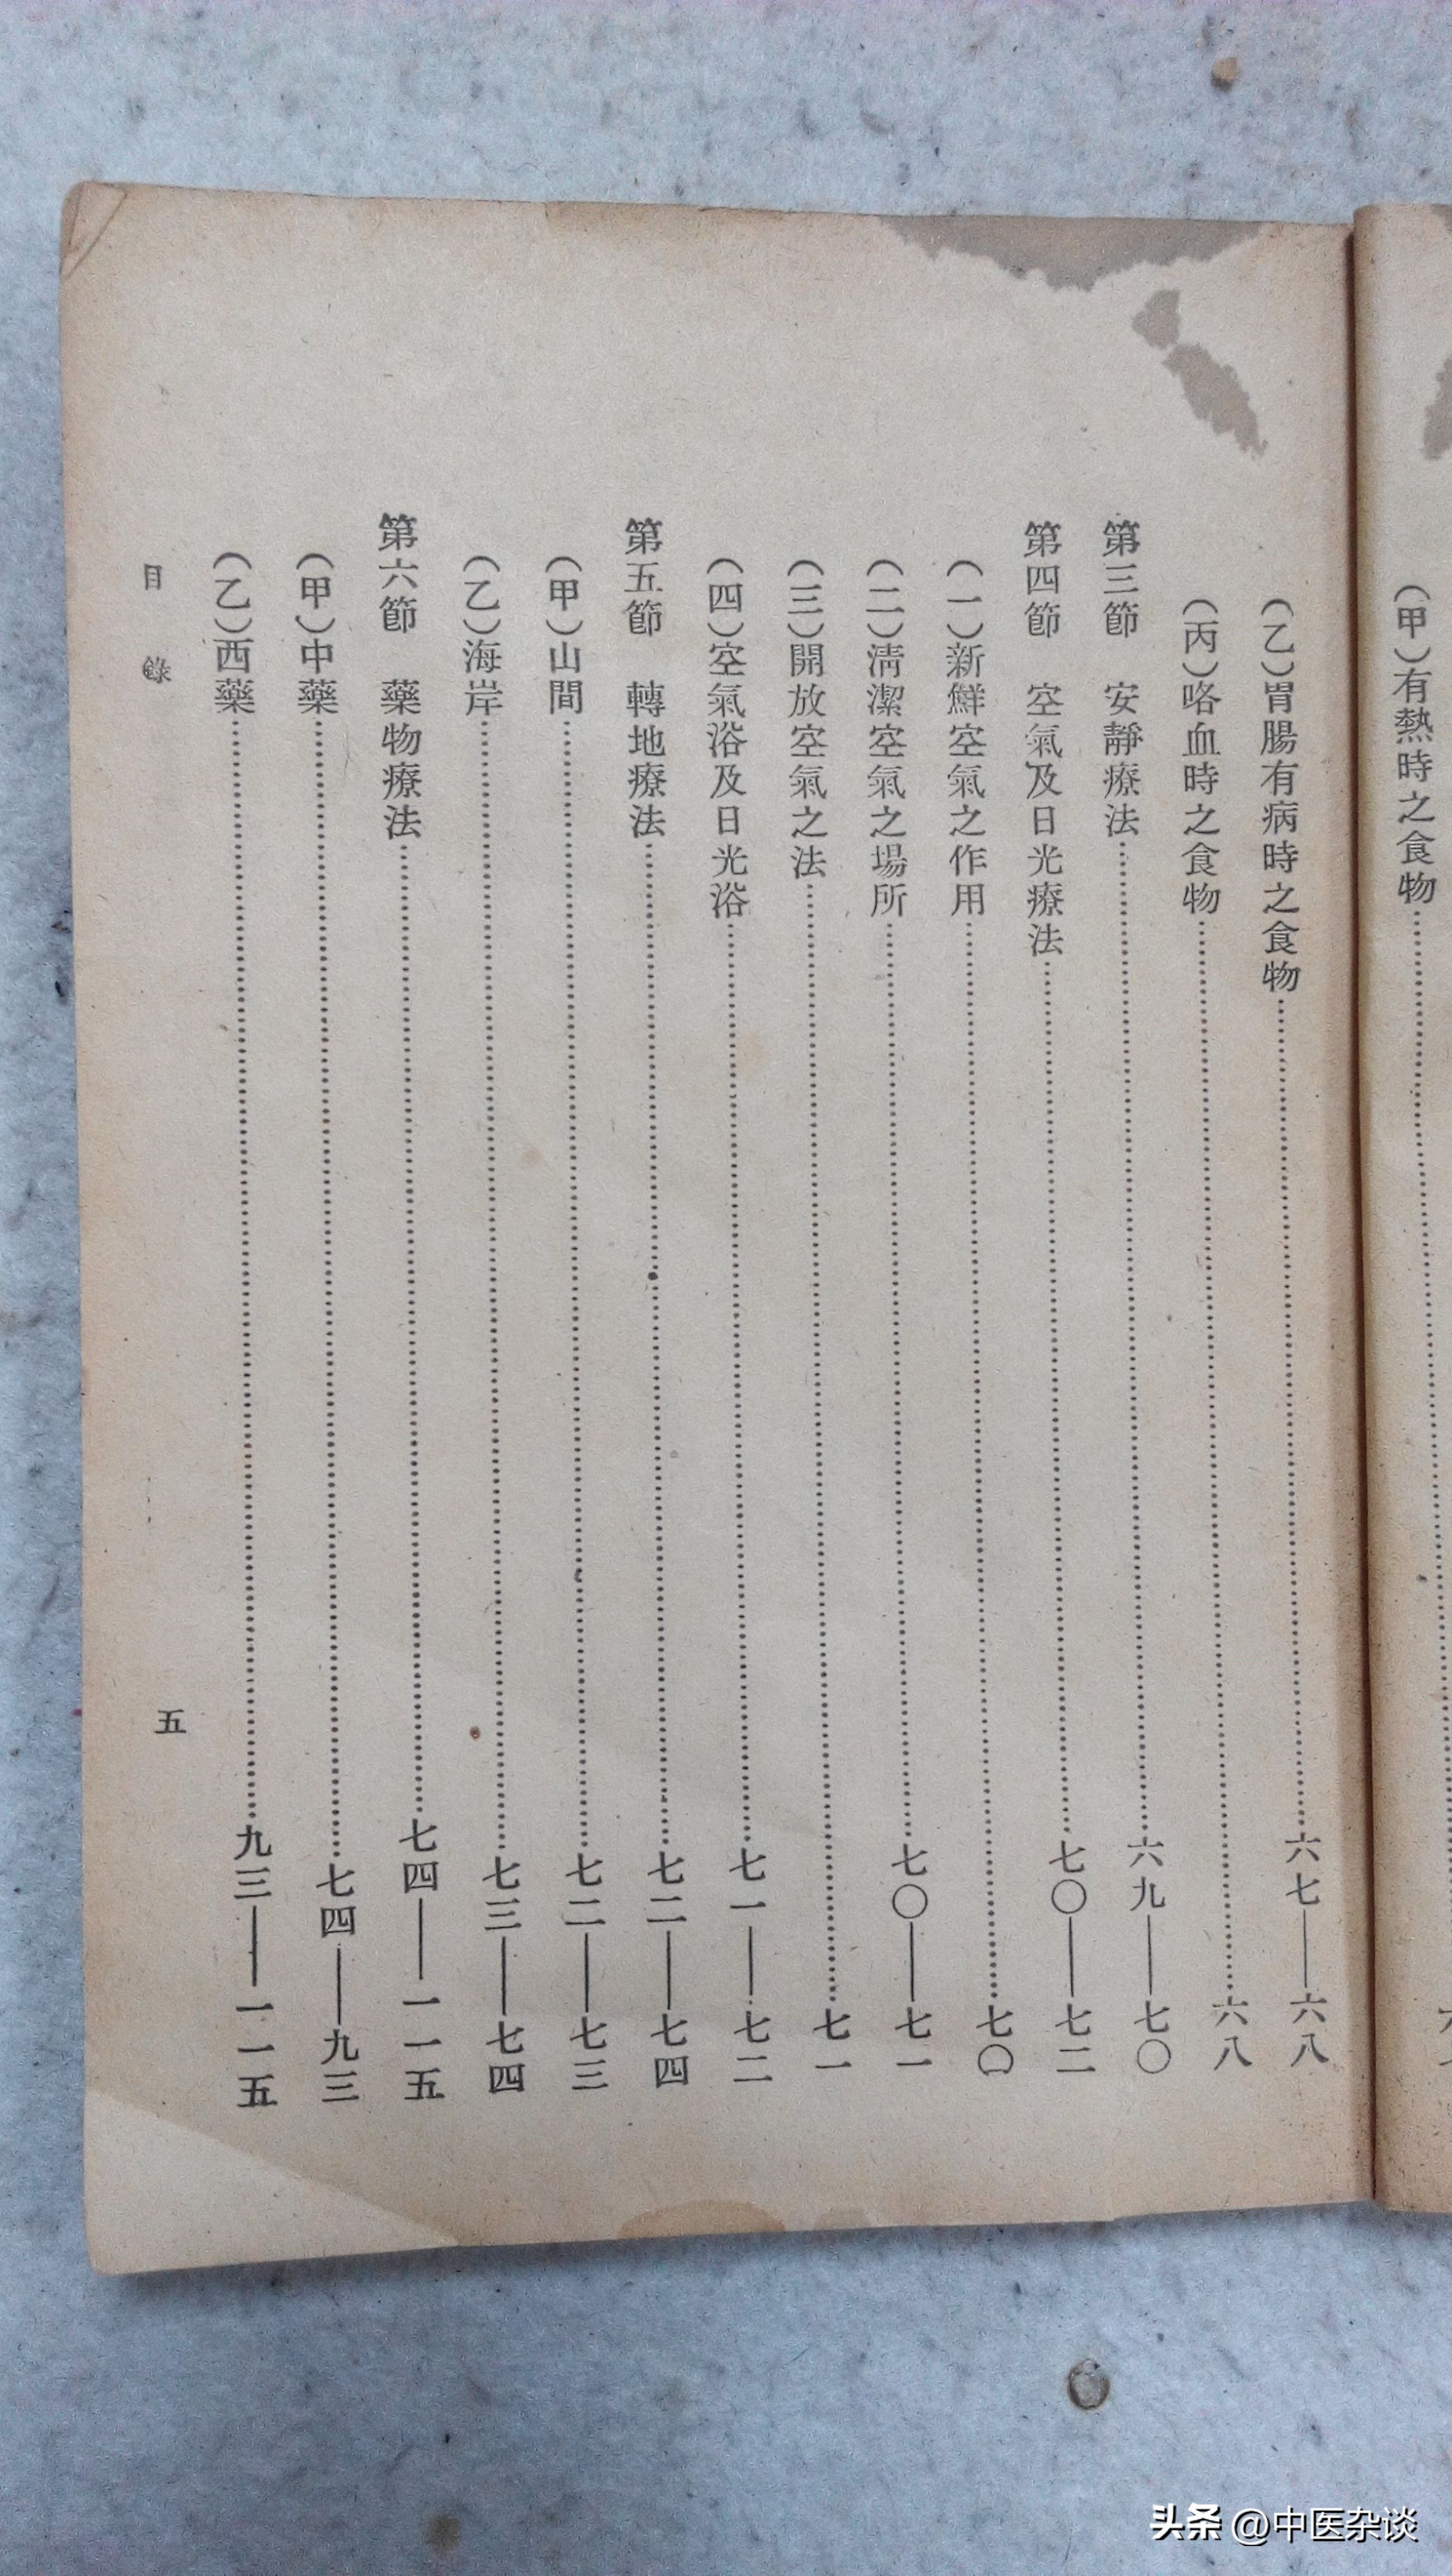 (甲)有熱時之食物
(乙)胃腸有病時之食物……六七——六八
(丙)咯血時之食物……六八
第三節　安靜療法……六九——七〇
第四節　空氣及日光療法……七〇——七二
(一)新鮮空氣之作用……七〇
(二)清潔空氣之場所……七〇——七一
(三)開放空氣之法……七一
(四)空氣浴及日光浴……七一——七二
第五節　轉地療法……七二——七四
(甲)山間……七二——七三
(乙)海岸……七三——七四
第六節　藥物療法……七四——一一五
(甲)中藥……七四——九三
(乙)西藥……九三——一一五
目錄　五
头条 @中医杂谈